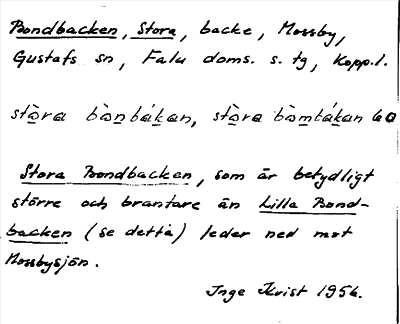 Bondbacken, Stora, backe, Mossby,
Gustafs sn, Falu doms. s. tg, Kopp. l.
stòra bònbákan, stòra bòmbákan 60
Stora Bondbacken, som är betydligt
större och brantare än Lilla Bond-
backen (se detta) leder ned mot
Mossbysjön.
Inge Kvist 1956.